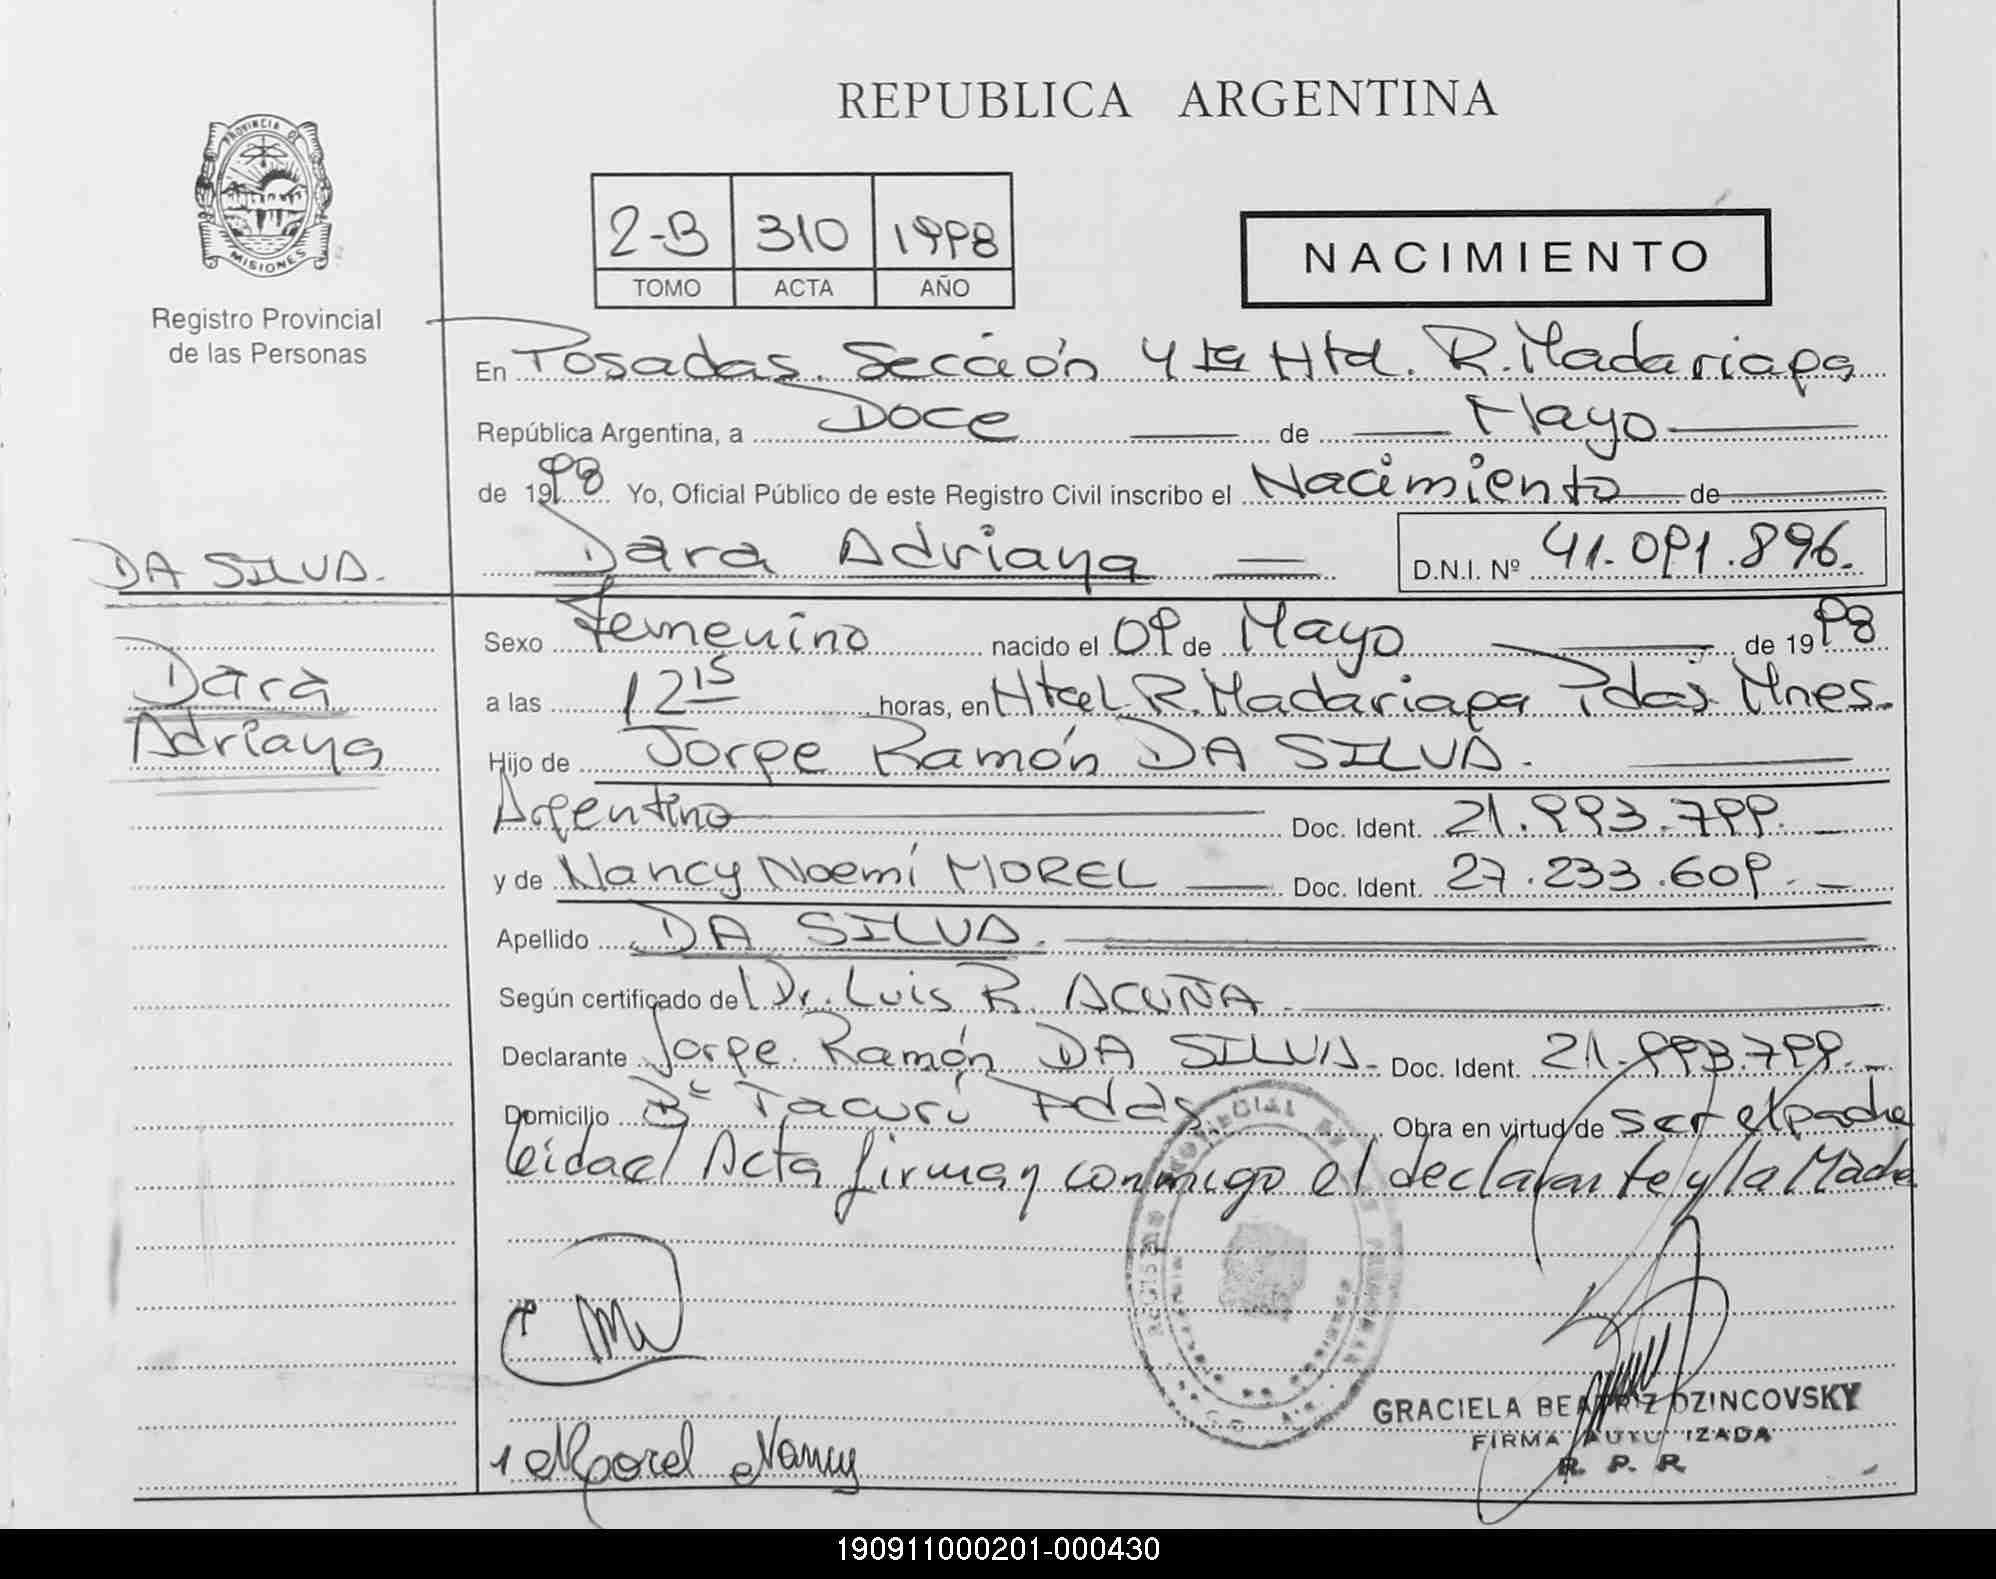 REPUBLICA ARGENTINA
PROVINCIA DE
MISIONES
Registro Provincial
de las Personas
2-B 310 1998
TOMO ACTA AÑO
NACIMIENTO
En Posadas. Sección 4ta Htal. R. Madariaga
República Argentina, a Doce de Mayo
de 1998 Yo, Oficial Público de este Registro Civil inscribo el Nacimiento de
DA SILVA.
Dara Adriana D.N.I. Nº 41.091.896.
Dara
Adriana
Sexo Femenino nacido el 09 de Mayo de 1998
a las 12 15 horas, en Htal R. Madariaga Pdas. Mnes.
Hijo de Jorge Ramón DA SILVA.
Argentino Doc. Ident. 21.993.799.
y de Nancy Noemí MOREL Doc. Ident. 27.233.609.
Apellido DA SILVA.
Según certificado de Dr. Luis R. ACUÑA
Declarante Jorge Ramón DA SILVA. Doc. Ident. 21.993.799.
Domicilio Bº Tacurú Pdas. Obra en virtud de ser el padre
leida el Acta firman conmigo el declarante y la Madre
Morel Nancy
GRACIELA BEATRIZ DZINCOVSKY
FIRMA AUTORIZADA
R. P. P.
190911000201-000430